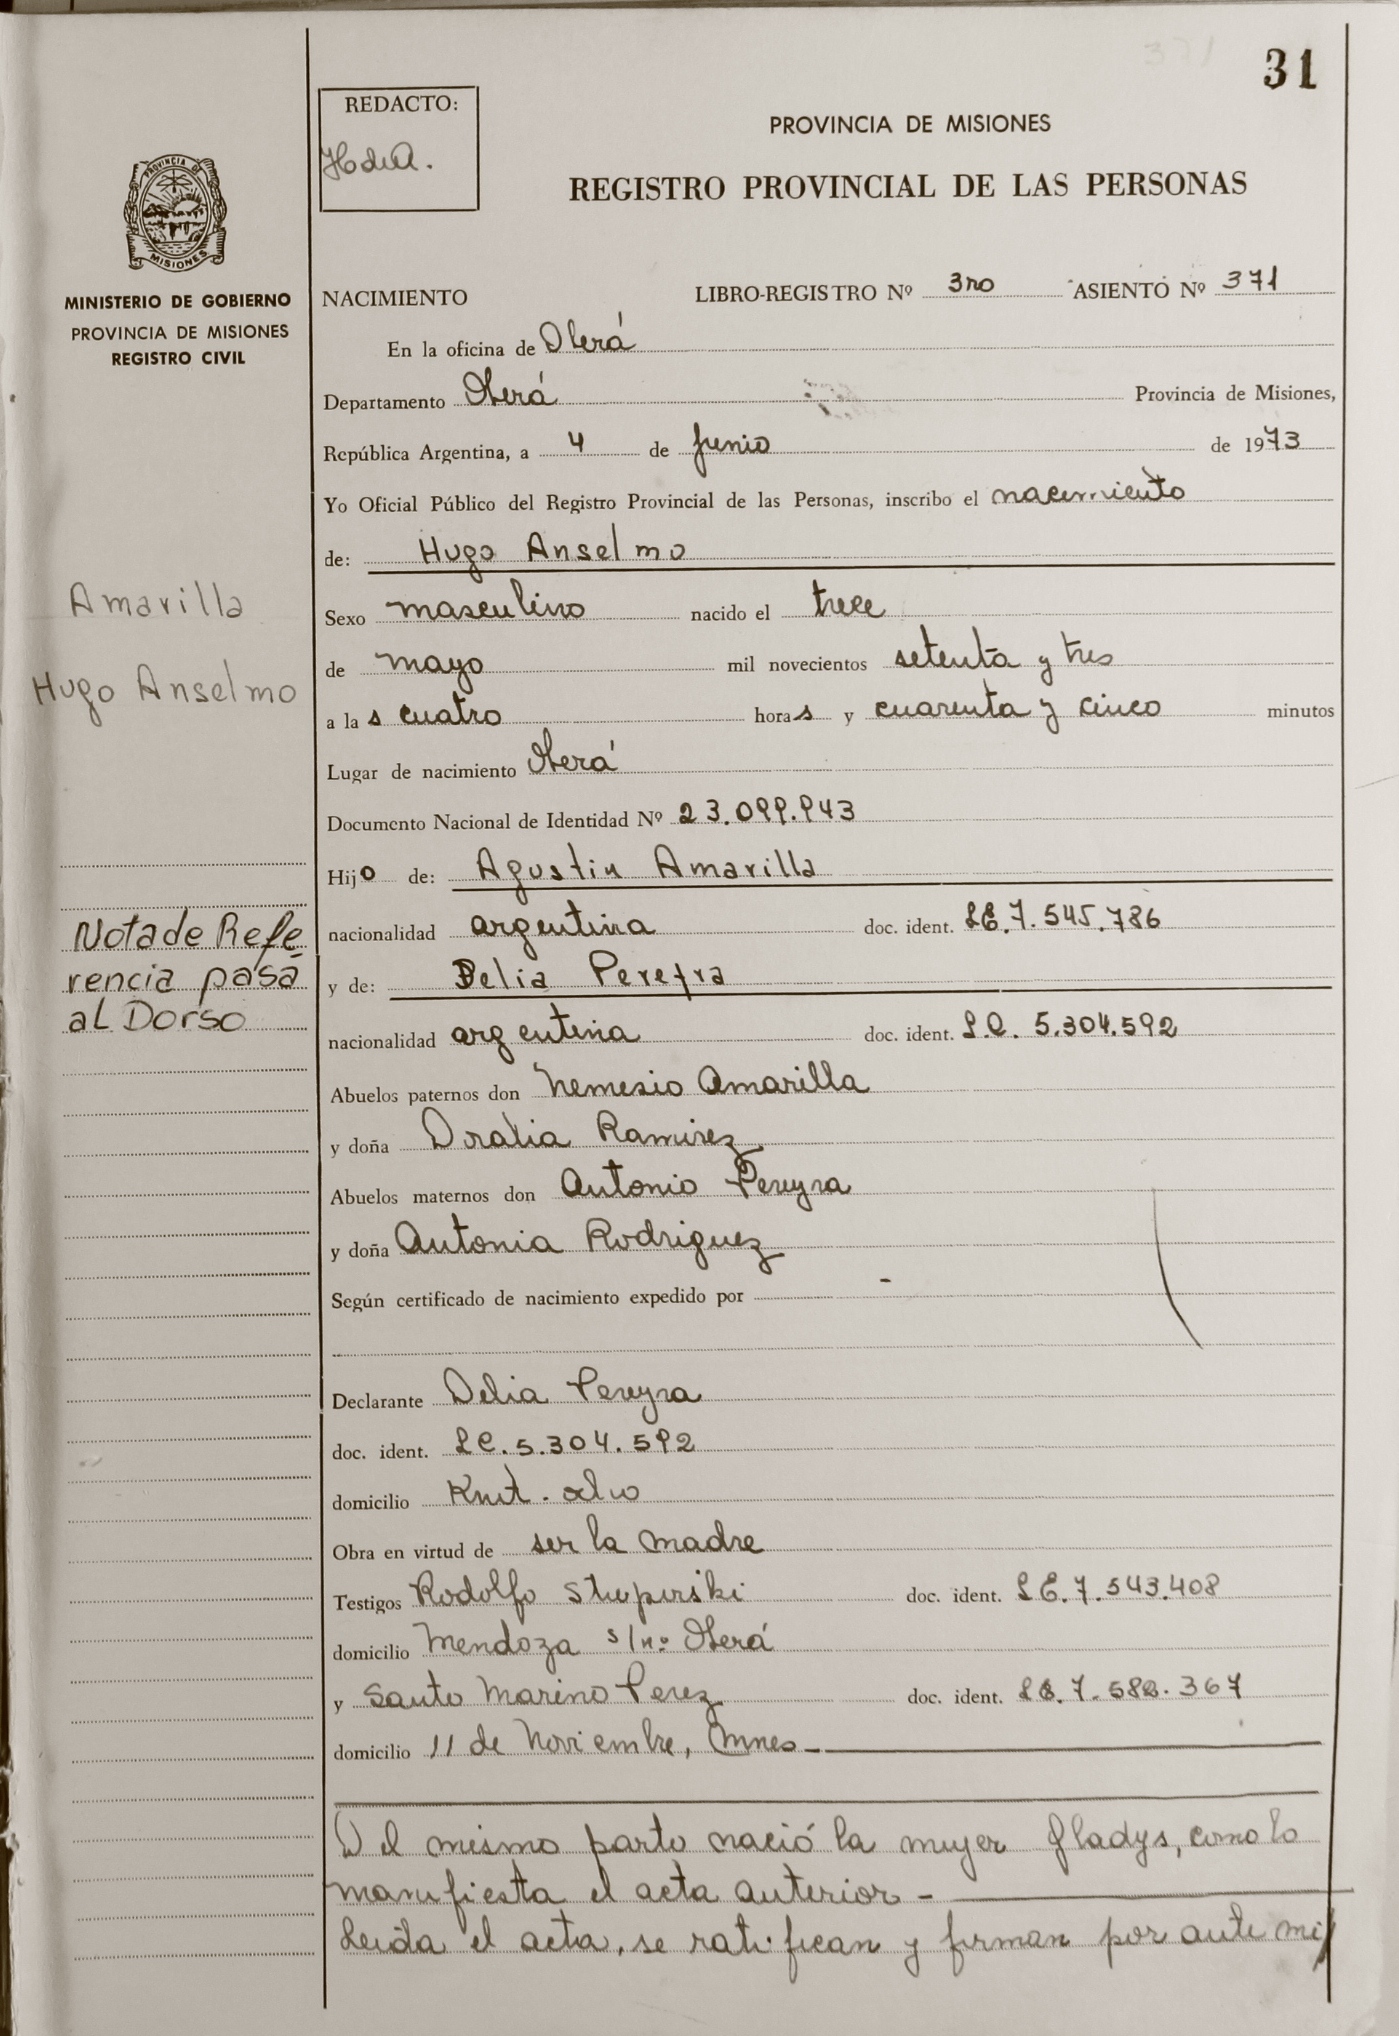 31
REDACTO:
PROVINCIA DE MISIONES
REGISTRO PROVINCIAL DE LAS PERSONAS
PROVINCIA DE
MISIONES
MINISTERIO DE GOBIERNO
PROVINCIA DE MISIONES
REGISTRO CIVIL
NACIMIENTO LIBRO-REGISTRO Nº 3ro ASIENTO Nº 371
En la oficina de Oberá
Departamento Oberá Provincia de Misiones,
República Argentina, a 4 de Junio de 1973
Yo Oficial Público del Registro Provincial de las Personas, inscribo el nacimiento
de: Hugo Anselmo
Amarilla
Hugo Anselmo
Sexo masculino nacido el trece
de mayo mil novecientos setenta y tres
a las cuatro horas y cuarenta y cinco minutos
Lugar de nacimiento Oberá
Documento Nacional de Identidad Nº 23.099.943
Hijo de: Agustin Amarilla
nacionalidad argentina doc. ident. LE.7.545.786
Nota de Refe
rencia pasa
al Dorso
y de: Delia Pereyra
nacionalidad argentina doc. ident. L.C. 5.304.592
Abuelos paternos don Nemesio Amarilla
y doña Oralia Ramirez
Abuelos maternos don Antonio Pereyra
y doña Antonia Rodriguez
Según certificado de nacimiento expedido por -
Declarante Delia Pereyra
doc. ident. LC.5.304.592
domicilio
Obra en virtud de ser la madre
Testigos Rodolfo doc. ident. LE.7.543.408
domicilio Mendoza s/nº Oberá
y Santo Marino Perez doc. ident. LE.7.582.367
domicilio 11 de Noviembre,
Del mismo parto nació la mujer Gladys, como lo
manifiesta el acta anterior -
Leida el acta, se ratifican y firman por ante mi